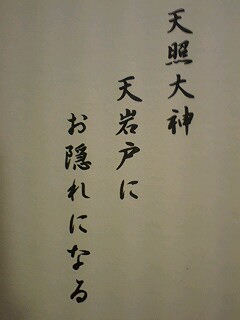 天照大神
天岩戸に
お隠れになる